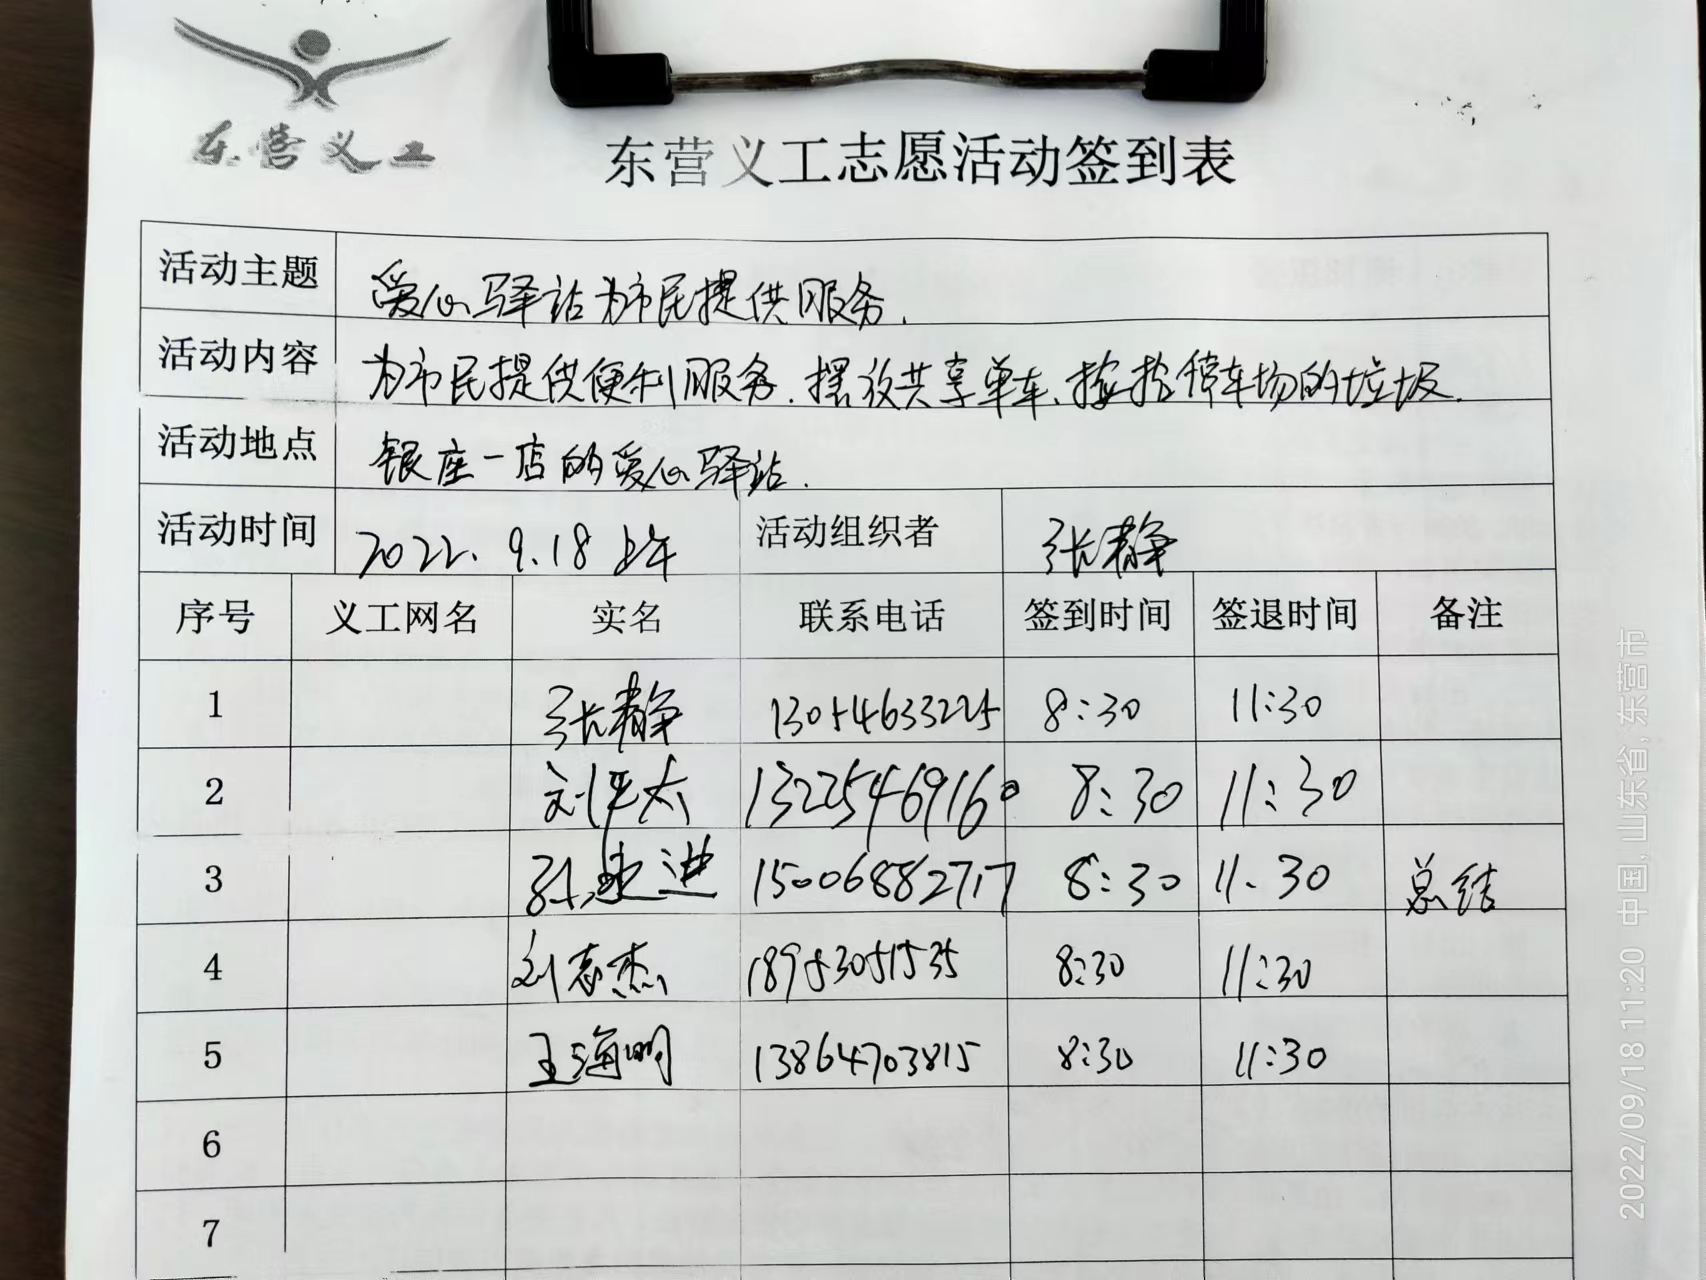 东营义工
东营义工志愿活动签到表
活动主题 爱心驿站为市民提供服务.
活动内容 为市民提供便利服务.摆放共享单车、捡拾停车场的垃圾.
活动地点 银座一店的爱心驿站.
活动时间 2022.9.18上午 活动组织者 张静
序号 义工网名 实名 联系电话 签到时间 签退时间 备注
1 张静 13054633225 8:30 11:30
2 刘平太 13225469160 8:30 11:30
3 进 15006882717 8:30 11.30 总结
4 刘志杰 18953051535 8:30 11:30
5 王海明 13864703815 8:30 11:30
6
7
2022/09/18 11:20 中国, 山东省, 东营市